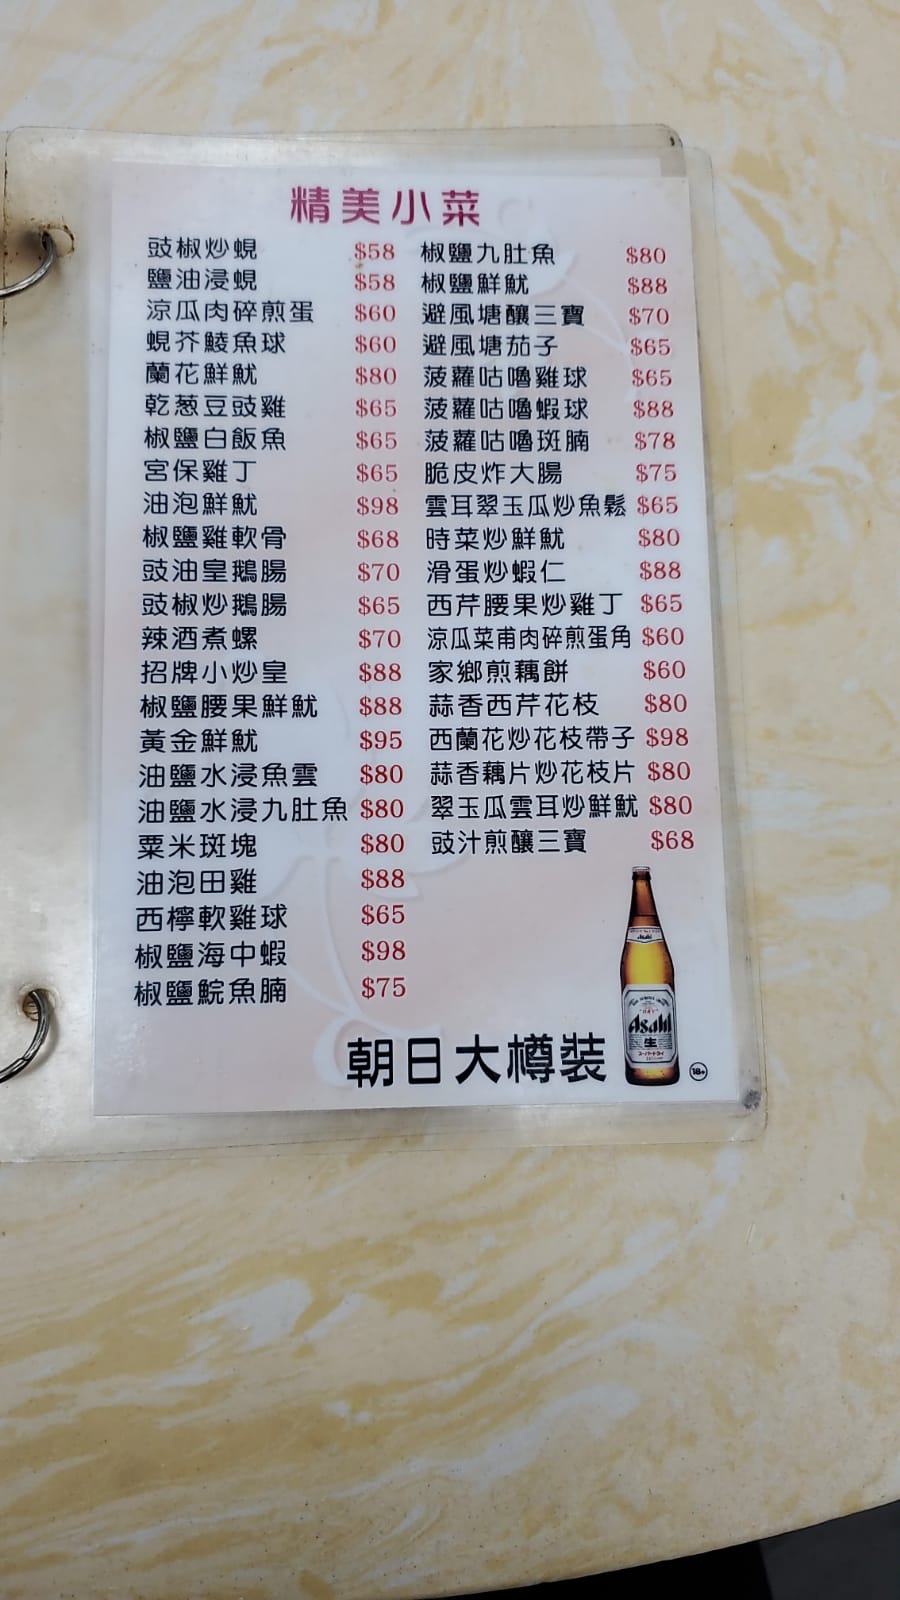 精美小菜
豉椒炒蜆 $58
鹽油浸蜆 $58
涼瓜肉碎煎蛋 $60
蜆芥鯪魚球 $60
蘭花鮮魷 $80
乾葱豆豉雞 $65
椒鹽白飯魚 $65
宮保雞丁 $65
油泡鮮魷 $98
椒鹽雞軟骨 $68
豉油皇鵝腸 $70
豉椒炒鵝腸 $65
辣酒煮螺 $70
招牌小炒皇 $88
椒鹽腰果鮮魷 $88
黃金鮮魷 $95
油鹽水浸魚雲 $80
油鹽水浸九肚魚 $80
粟米斑塊 $80
油泡田雞 $88
西檸軟雞球 $65
椒鹽海中蝦 $98
椒鹽鯇魚腩 $75
椒鹽九肚魚 $80
椒鹽鮮魷 $88
避風塘釀三寶 $70
避風塘茄子 $65
菠蘿咕嚕雞球 $65
菠蘿咕嚕蝦球 $88
菠蘿咕嚕斑腩 $78
脆皮炸大腸 $75
雲耳翠玉瓜炒魚鬆 $65
時菜炒鮮魷 $80
滑蛋炒蝦仁 $88
西芹腰果炒雞丁 $65
涼瓜菜甫肉碎煎蛋角 $60
家鄉煎藕餅 $60
蒜香西芹花枝 $80
西蘭花炒花枝帶子 $98
蒜香藕片炒花枝片 $80
翠玉瓜雲耳炒鮮魷 $80
豉汁煎釀三寶 $68
朝日大樽裝
Asahi
Asahi
生
スーパードライ
18+